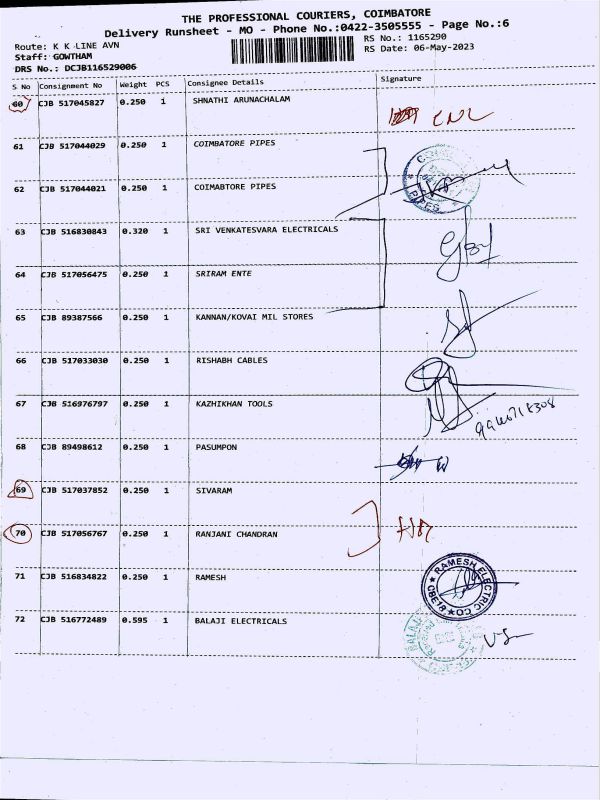 THE PROFESSIONAL COURIERS, COIMBATORE
Delivery Runsheet - MO - Phone No.:0422-3505555 - Page No.:6
Route: K K LINE AVN
RS No.: 1165290
Staff: GOWTHAM
RS Date: 06-May-2023
DRS No.: DCJB116529006
S No Consignment No Weight PCS Consignee Details Signature
60 CJB 517045827 0.250 1 SHNATHI ARUNACHALAM
61 CJB 517044029 0.250 1 COIMBATORE PIPES
62 CJB 517044021 0.250 1 COIMABTORE PIPES
PIPES
63 CJB 516830843 0.320 1 SRI VENKATESVARA ELECTRICALS
64 CJB 517056475 0.250 1 SRIRAM ENTE
65 CJB 89387566 0.250 1 KANNAN/KOVAI MIL STORES
66 CJB 517033030 0.250 1 RISHABH CABLES
67 CJB 516976797 0.250 1 KAZHIKHAN TOOLS
68 CJB 89498612 0.250 1 PASUMPON
69 CJB 517037852 0.250 1 SIVARAM
70 CJB 517056767 0.250 1 RANJANI CHANDRAN
71 CJB 516834822 0.250 1 RAMESH
RAMESH ELECTRIC CO CBE18
72 CJB 516772489 0.595 1 BALAJI ELECTRICALS
BALAJI